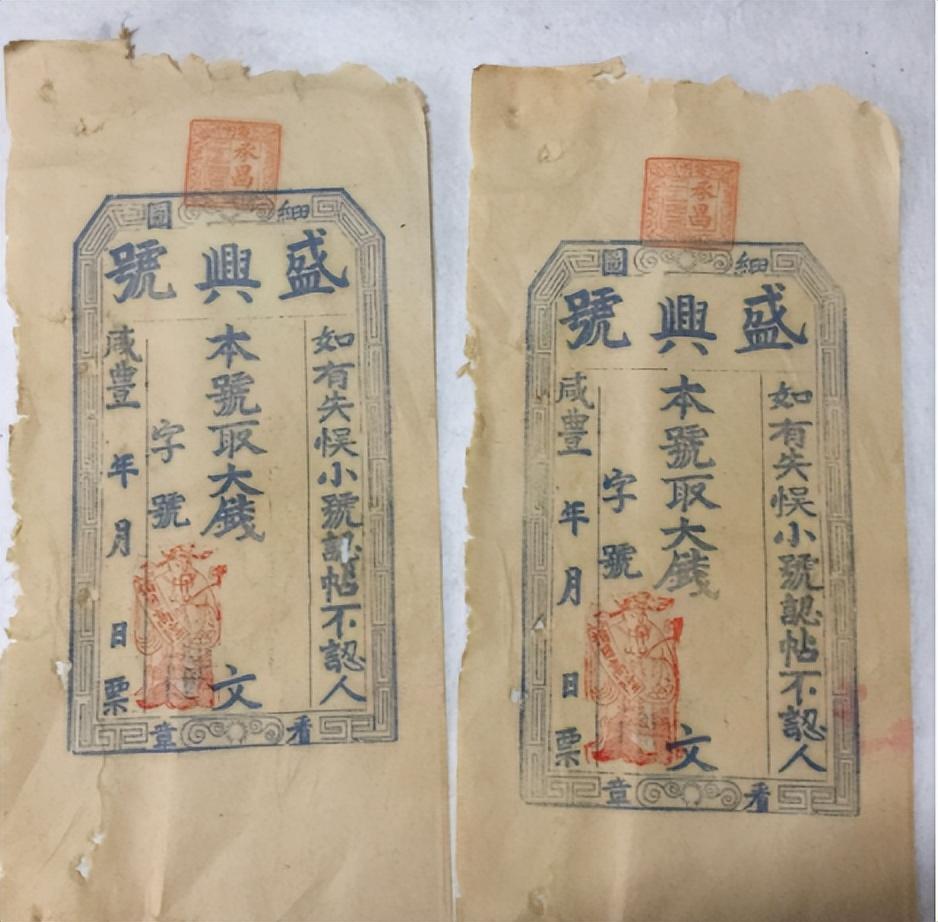 細圖
盛興號
如有失悮小號認帖不認人
本號取大錢 文
字 號
咸豐 年 月 日 票
看章
細圖
盛興號
如有失悮小號認帖不認人
本號取大錢 文
字 號
咸豐 年 月 日 票
看章